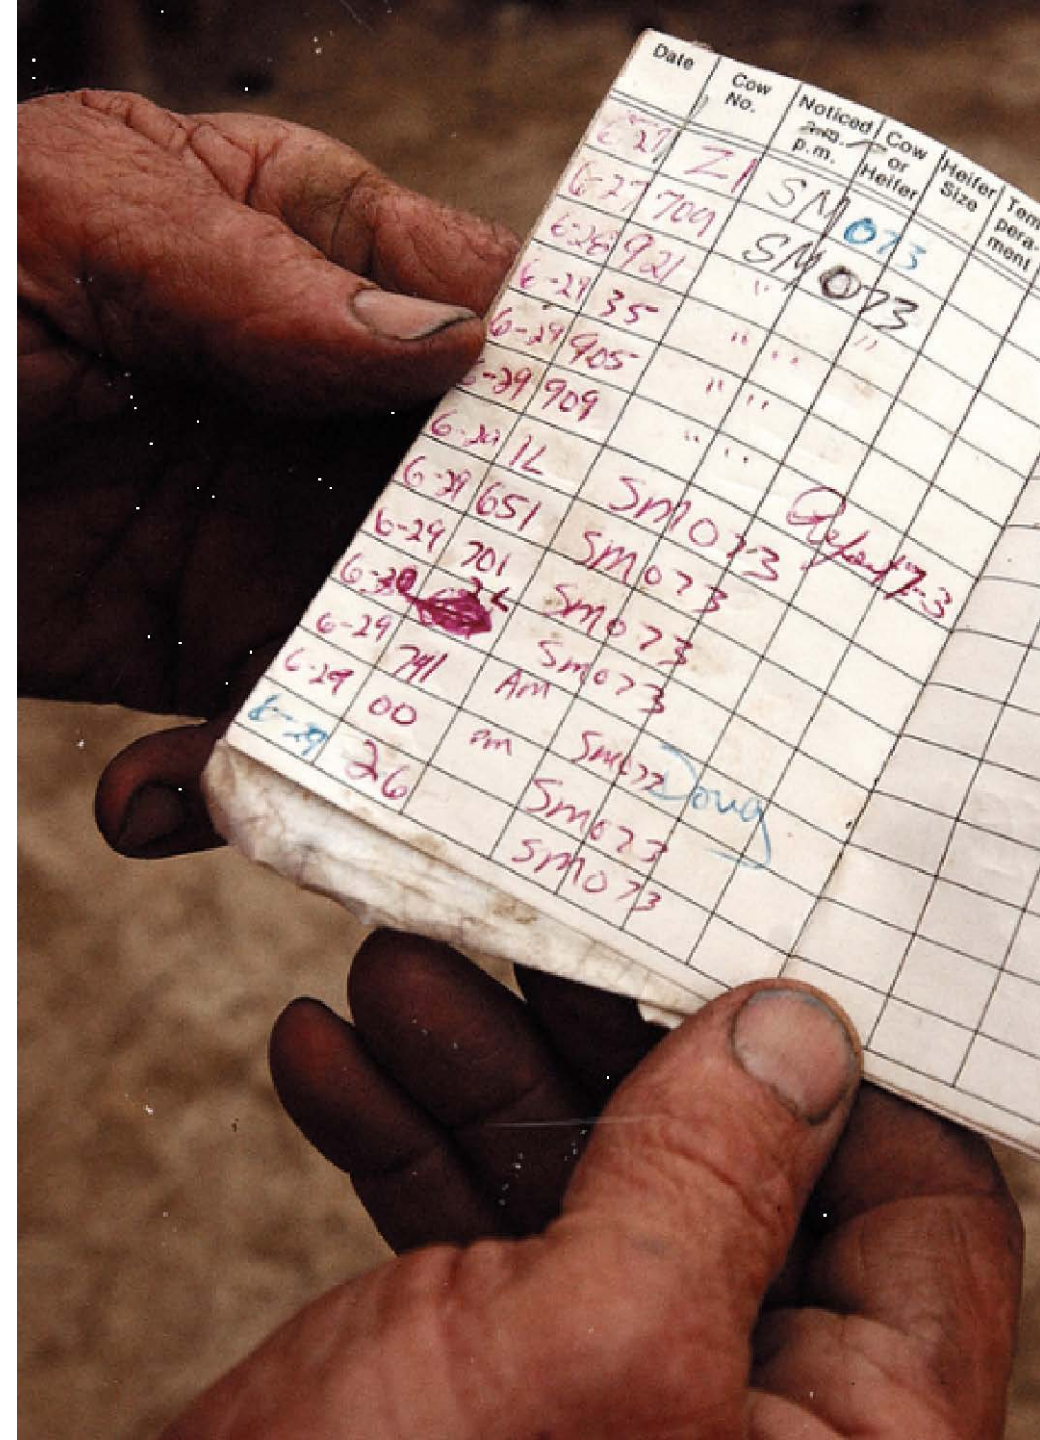 Date Cow No. Noticed a.m. p.m. Cow or Heifer Heifer Size Tem pera- ment
6-27 Z1 SM073
6-27 709 SM073
6-28 921 " "
6-29 35 " "
6-29 905 " "
6-29 909 " "
6-29 1L SM073
6-29 651 SM073
6-29 701 SM073
2L SM073
6-29 741 Am SM073 Doug
6-29 00 pm SM073
6-29 26 SM073